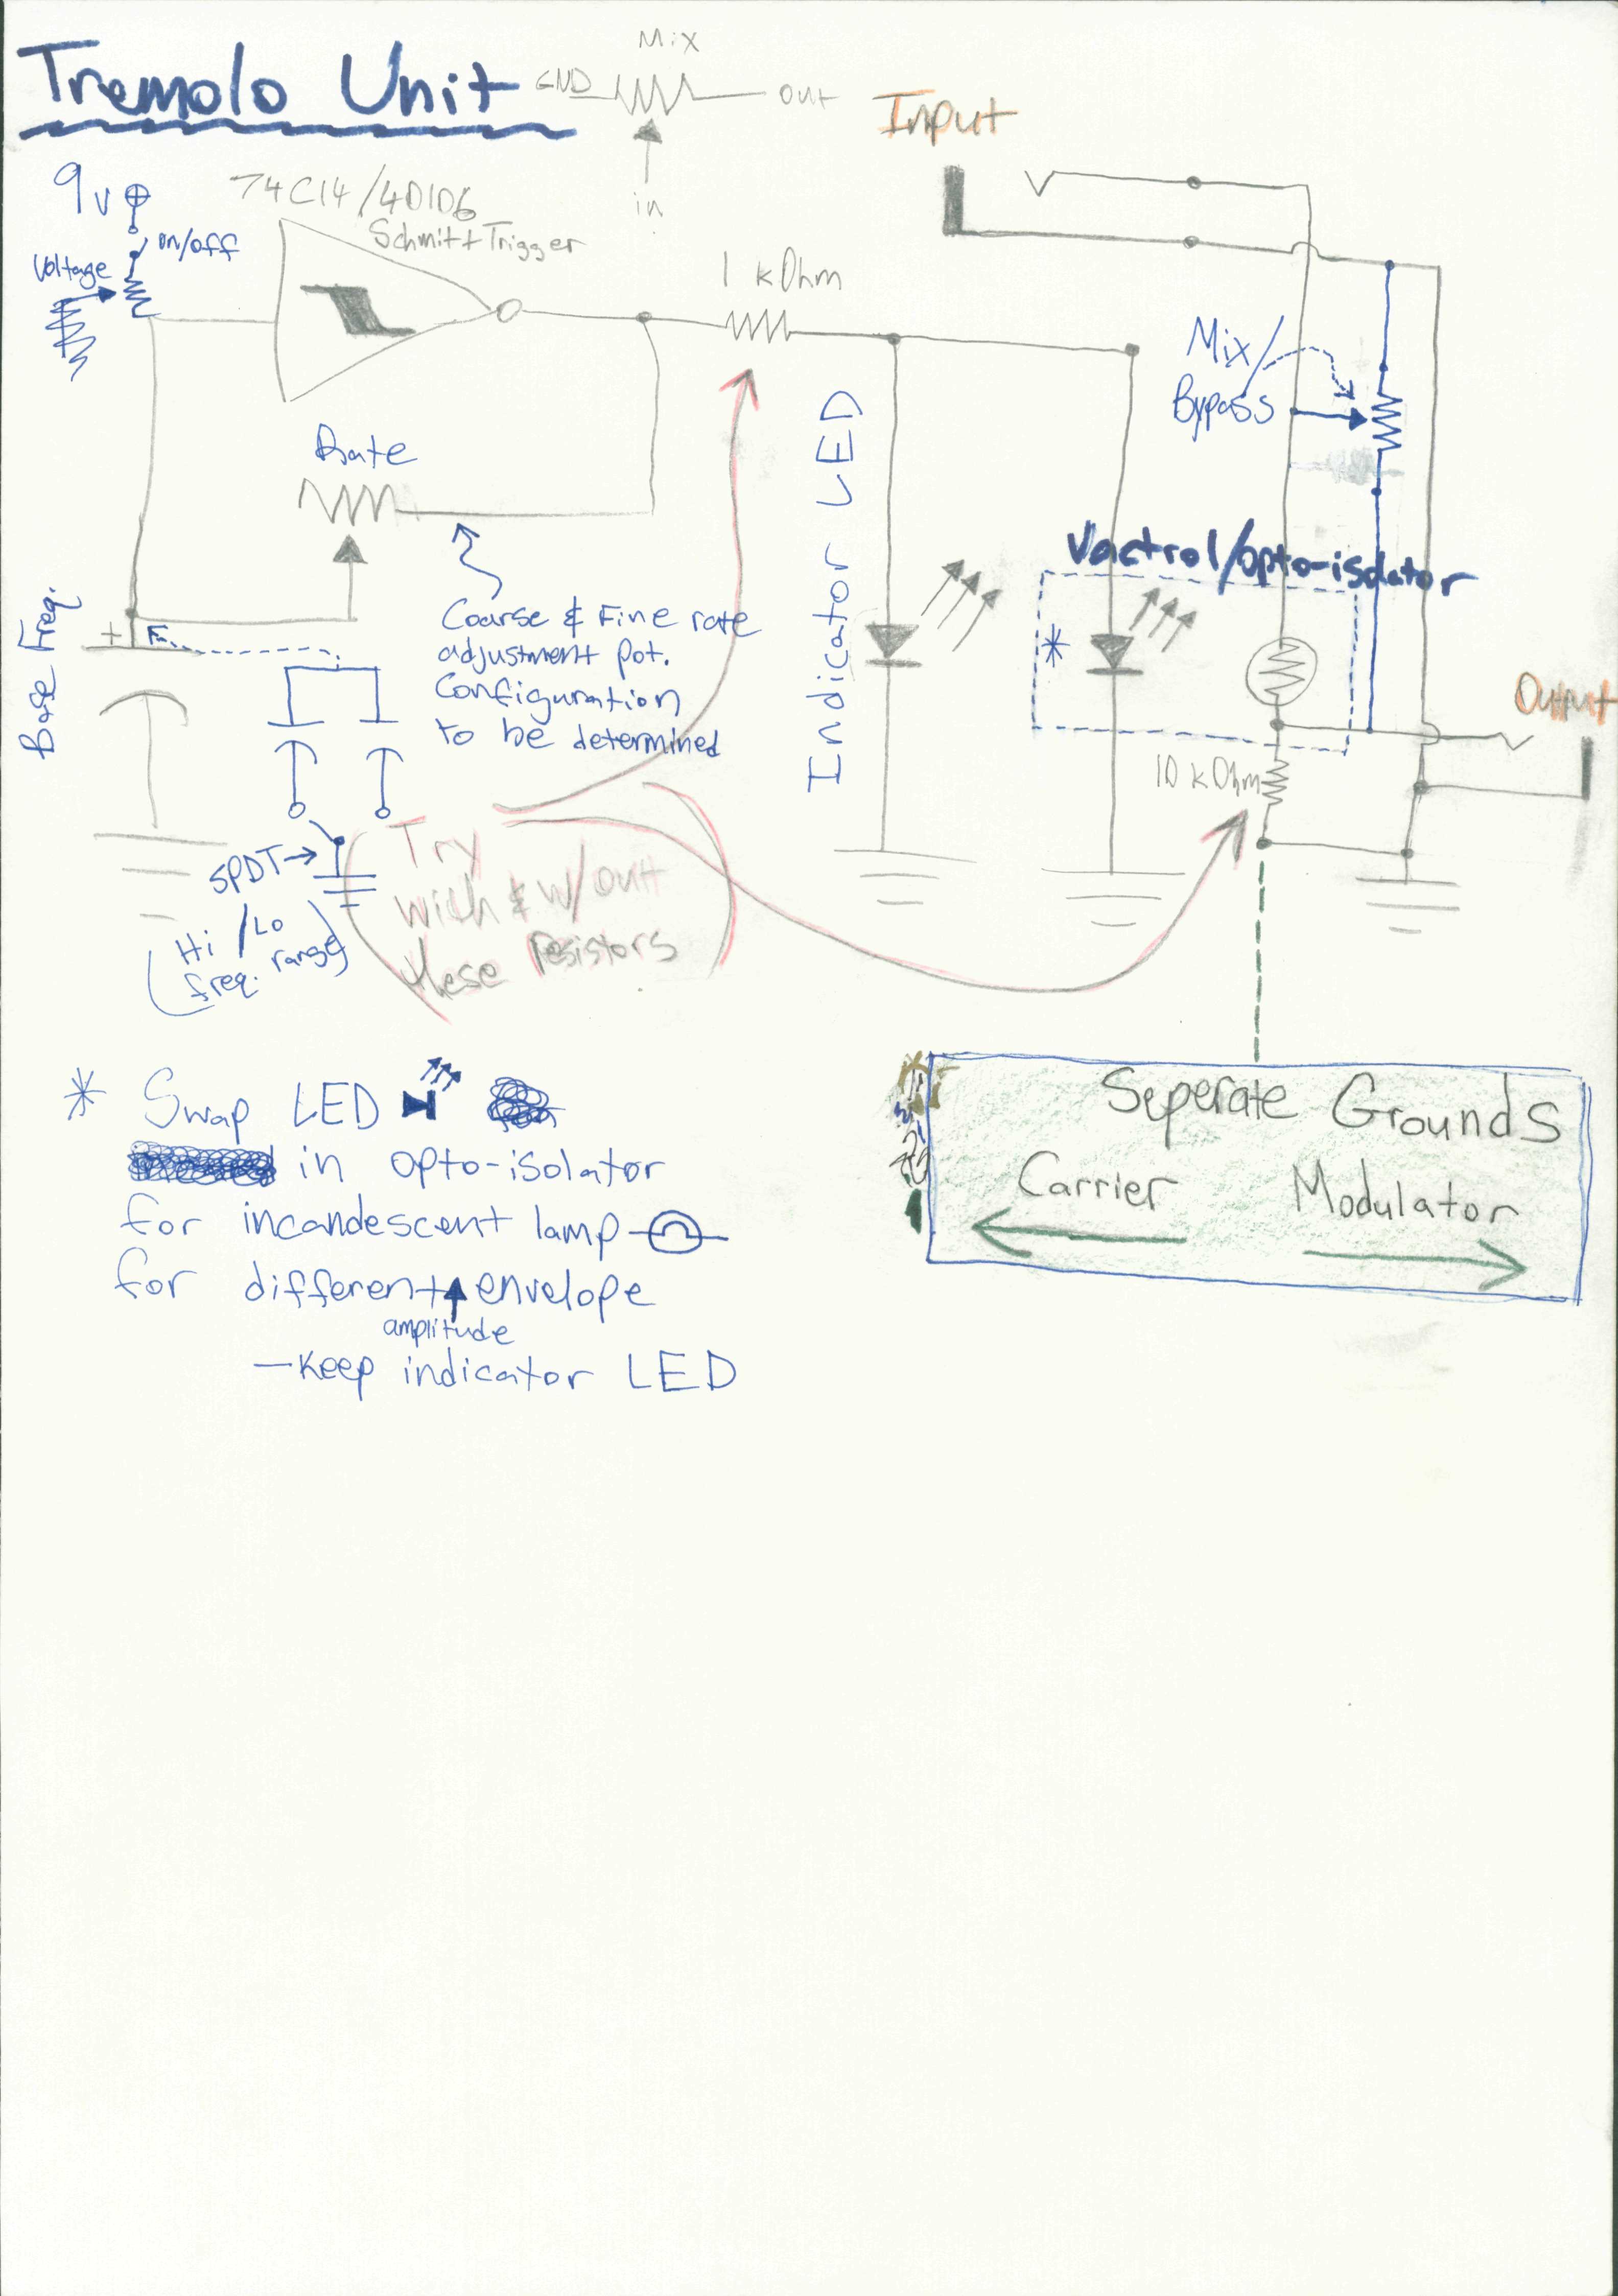 Tremolo Unit
Mix
GND
out
in
Input
9v
on/off
Voltage
74C14/40106
Schmitt Trigger
1 kOhm
Rate
Mix/
Bypass
Indicator LED
Vactrol/opto-isolator
*
Output
10 kOhm
Base Freq.
+
Coarse & Fine rate
adjustment pot.
Configuration
to be determined
SPDT
Hi/Lo
freq. range
Try
with & w/out
these resistors
* Swap LED
in opto-isolator
for incandescent lamp
for different envelope
amplitude
-Keep indicator LED
Seperate Grounds
Carrier
Modulator